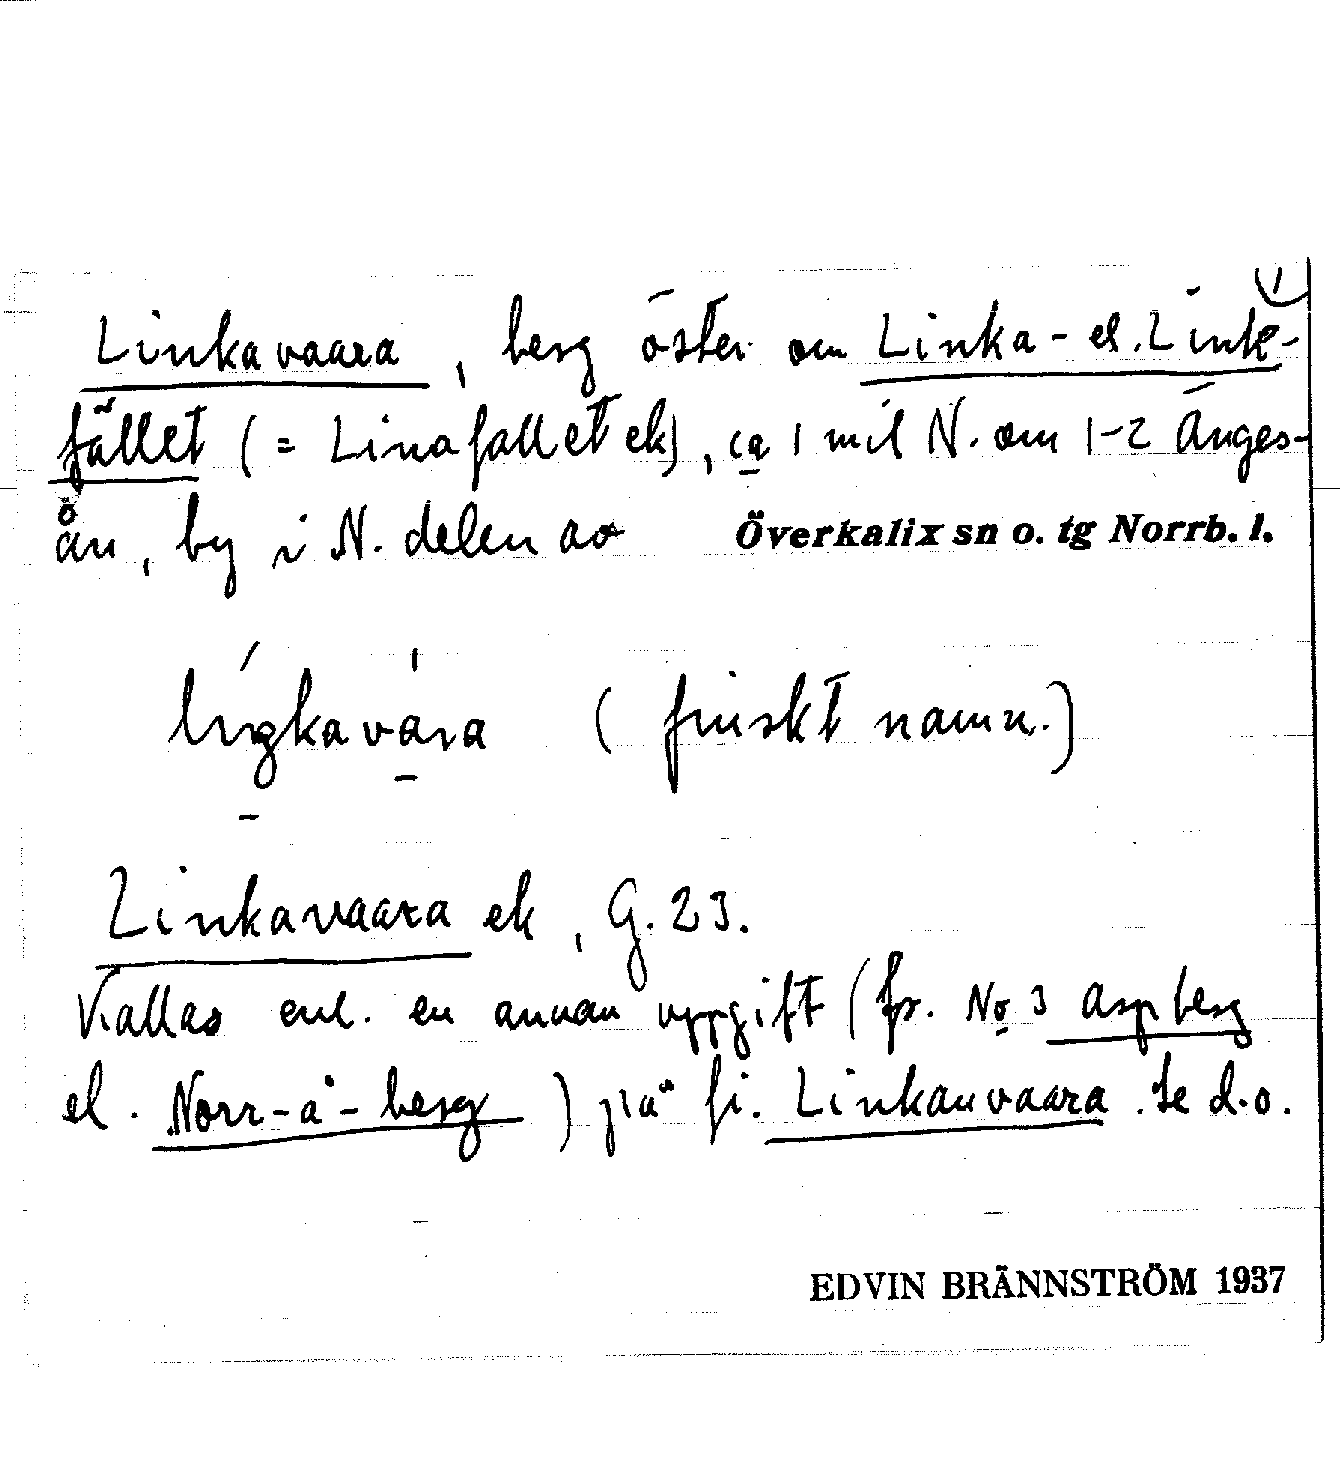 1
Linkavaara, berg öster om Linka- el. Link-
fallet (= Linafallet ek), ca 1 mil N. om 1-2 Änges-
ån, by i N. delen av Överkalix sn o. tg Norrb. l.
(finskt namn.)
Linkavaara ek, G. 23.
Kallas enl. en annan uppgift (fr. No 3 Aspberg
el. Norr-å-berg) på fi. Linkanvaara. Se d.o.
EDVIN BRÄNNSTRÖM 1937